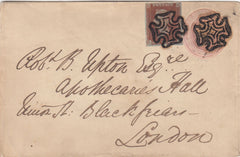 Robt. B. Upton Esqre
Apothecaries Hall
Union St. Blackfriars
London